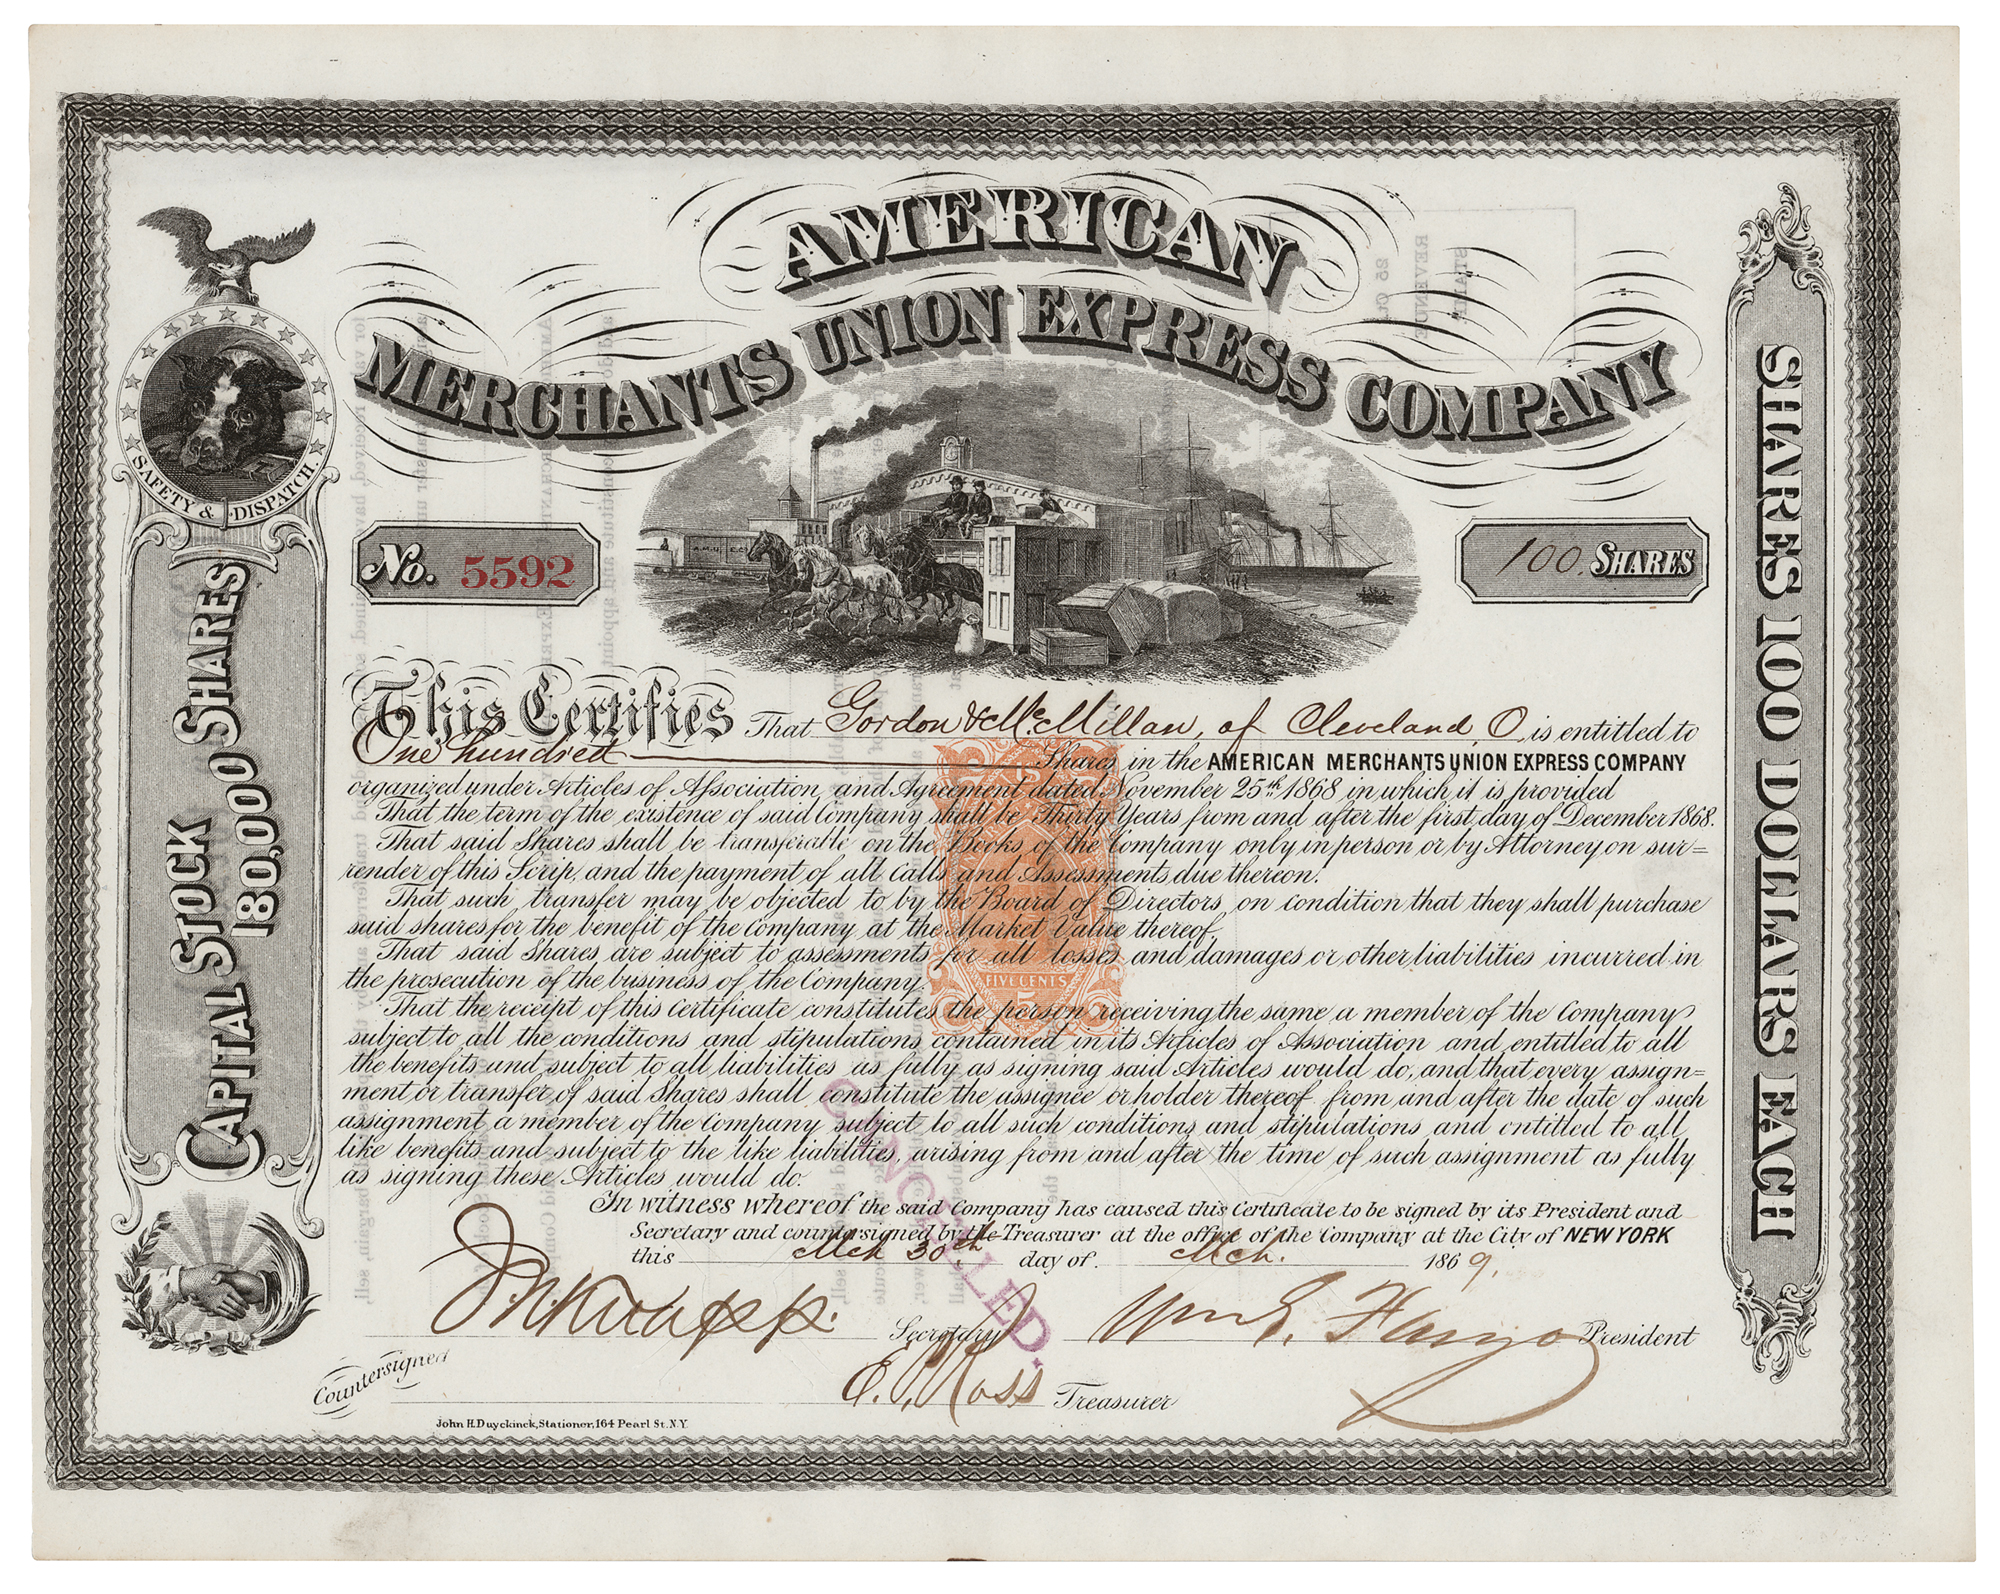 AMERICAN
MERCHANTS UNION EXPRESS COMPANY
SAFETY & DISPATCH.
No. 5592
100. SHARES
CAPITAL STOCK 180,000 SHARES
SHARES 100 DOLLARS EACH
This Certifies That Gordon & McMillan, of Cleveland, O, is entitled to
One hundred Shares in the AMERICAN MERCHANTS UNION EXPRESS COMPANY
organized under Articles of Association, and Agreement dated November 25th 1868 in which it is provided
That the term of the existence of said Company shall be Thirty Years from and after the first day of December 1868.
That said Shares shall be transferable on the Books of the Company only in person or by Attorney on sur=
render of this Scrip, and the payment of all Calls and Assessments due thereon.
That such transfer may be objected to by the Board of Directors on condition that they shall purchase
said shares for the benefit of the Company at the Market Value thereof.
That said Shares are subject to assessments for all losses and damages or other liabilities incurred in
the prosecution of the business of the Company.
FIVE CENTS
5
That the receipt of this Certificate constitutes the person receiving the same a member of the Company
subject to all the conditions and stipulations contained in its Articles of Association and entitled to all
the benefits and subject to all liabilities as fully as signing said Articles would do, and that every assign=
ment or transfer of said Shares shall constitute the assignee or holder thereof from and after the date of such
assignment a member of the Company subject to all such conditions and stipulations and entitled to all
like benefits and subject to the like liabilities, arising from and after the time of such assignment as fully
as signing these Articles would do.
In witness whereof the said Company has caused this Certificate to be signed by its President and
Secretary and countersigned by the Treasurer at the office of the Company at the City of NEW YORK
this Mch 30th day of Mch. 1869.
CANCELLED.
J.N. Knapp. Secretary Wm G. Fargo President
Countersigned Ross Treasurer
John H. Duyckinck, Stationer, 164 Pearl St. N.Y.